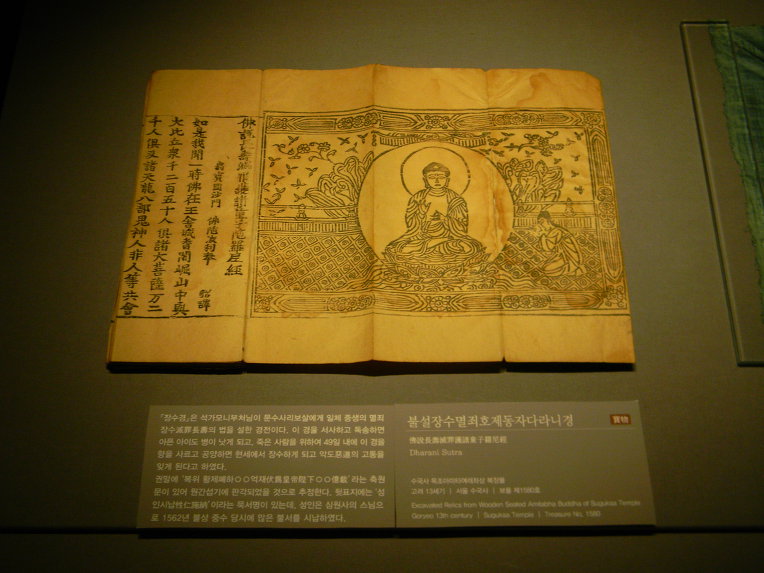 佛說長壽滅罪護諸童子陀羅尼經
罽賓國沙門 佛陀波利奉 詔譯
如是我聞一時佛在王舍城耆闍崛山中與
大比丘衆千二百五十人俱諸大菩薩万二
千人俱及諸天龍八部鬼神人非人等共會
「장수경」은 석가모니부처님이 문수사리보살에게 일체 중생의 멸죄
장수滅罪長壽의 법을 설한 경전이다. 이 경을 서사하고 독송하면
아픈 아이도 병이 낫게 되고, 죽은 사람을 위하여 49일 내에 이 경을
향을 사르고 공양하면 현세에서 장수하게 되고 악도惡道의 고통을
잊게 된다고 하였다.
권말에 '복위 황제폐하○○억재伏爲皇帝陛下○○億載'라는 축원
문이 있어 원간섭기에 판각되었을 것으로 추정한다. 뒷표지에는 '성
인시납性仁施納'이라는 묵서명이 있는데, 성인은 심원사의 스님으
로 1562년 불상 중수 당시에 많은 불서를 시납하였다.
불설장수멸죄호제동자다라니경 寶物
佛說長壽滅罪護諸童子羅尼經
Dharani Sutra
수국사 목조아미타여래좌상 복장물
고려 13세기 | 서울 수국사 | 보물 제1580호
Excavated Relics from Wooden Seated Amitabha Buddha of Suguksa Temple
Goryeo 13th century | Suguksa Temple | Treasure No. 1580